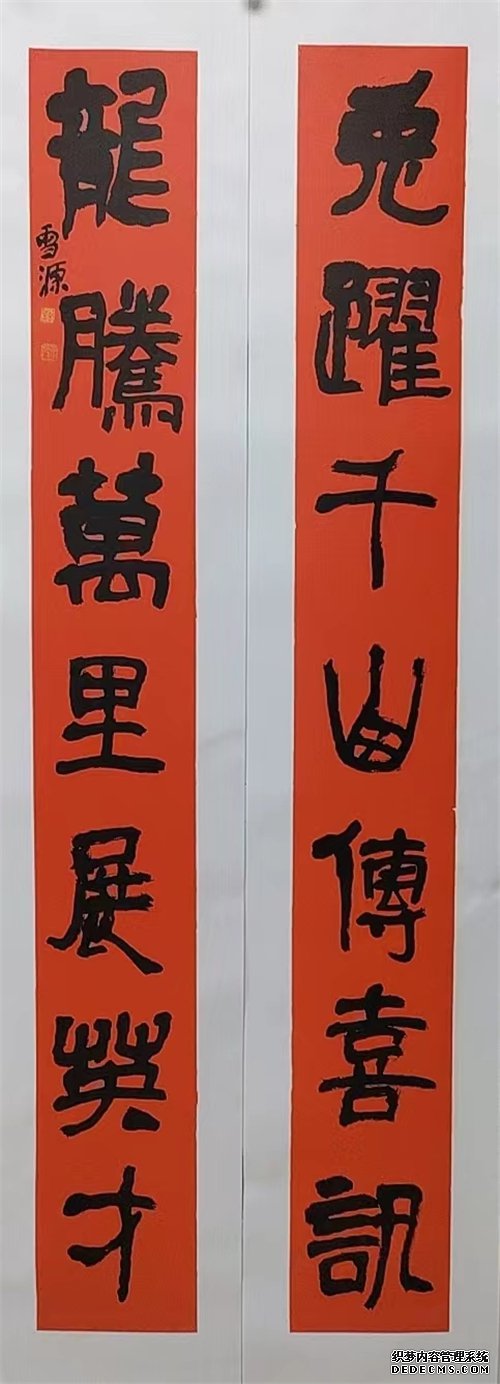 兎躍千山傳喜訊
龍騰萬里展英才
雪源
织梦内容管理系统
DEDECMS.COM